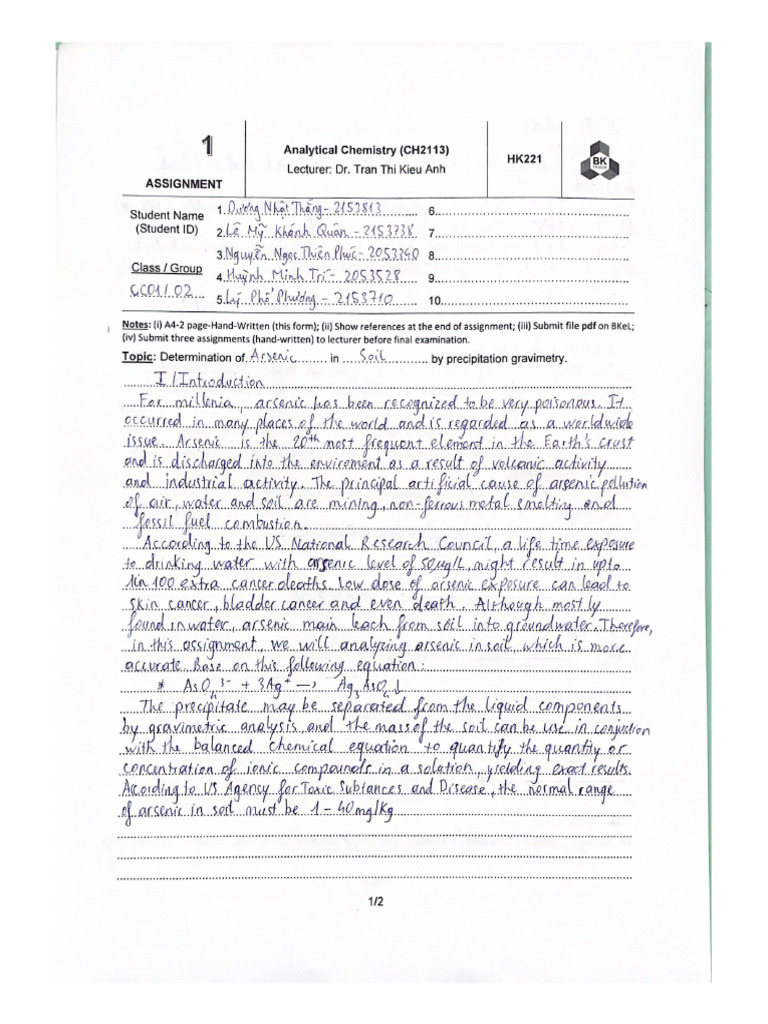 1
ASSIGNMENT
Analytical Chemistry (CH2113)
Lecturer: Dr. Tran Thi Kieu Anh
HK221
BK
Student Name
(Student ID)
Class / Group
CC01 / 02
1. Dương Nhật Thắng - 2153813
2. Lê Mỹ Khánh Quân - 2153738
3. Nguyễn Ngọc Thiên Phúc - 2053340
4. Huỳnh Minh Trí - 2053528
5. Lý Phổ Phương - 2153710
6.
7.
8.
9.
10.
Notes: (i) A4-2 page-Hand-Written (this form); (ii) Show references at the end of assignment; (iii) Submit file pdf on BKeL;
(iv) Submit three assignments (hand-written) to lecturer before final examination.
Topic: Determination of Arsenic in Soil by precipitation gravimetry.
I / Introduction
For millenia, arsenic has been recognized to be very poisonous. It
occurred in many places of the world and is regarded as a worldwide
issue. Arsenic is the 20th most frequent element in the Earth's crust
and is discharged into the enviroment as a result of volcanic activity
and industrial activity. The principal artificial cause of arsenic pollution
of air, water and soil are mining, non-ferrous metal smelting and
fossil fuel combustion.
According to the US National Research Council, a life time exposure
to drinking water with arsenic level of 50µg/L, might result in upto
1 in 100 extra cancer deaths. Low dose of arsenic exposure can lead to
skin cancer, bladder cancer and even death. Although mostly
found in water, arsenic main leach from soil into groundwater. Therefore,
in this assignment, we will analyzing arsenic in soil, which is more
accurate. Base on this following equation:
* AsO₄³⁻ + 3Ag⁺ → Ag₃AsO₄↓
The precipitate may be separated from the liquid components
by gravimetric analysis, and the mass of the soil can be use in conjuction
with the balanced chemical equation to quantify the quantity or
concentration of ionic compounds in a solation, yielding exact results.
Acording to US Agency for Toxic Subtances and Disease, the normal range
of arsenic in soil must be 1 - 40 mg/Kg
1/2